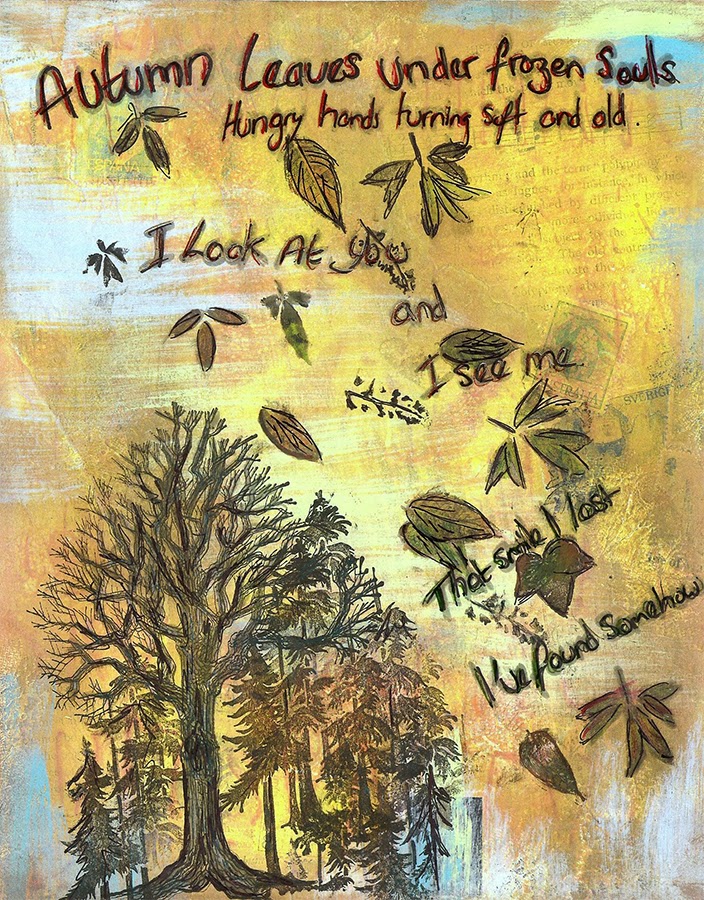 Autumn Leaves under frozen Souls.
Hungry hands turning soft and old.
I Look At you
and
I see me.
That smile I lost
I've found somehow
ESPAÑA
SVERIGE